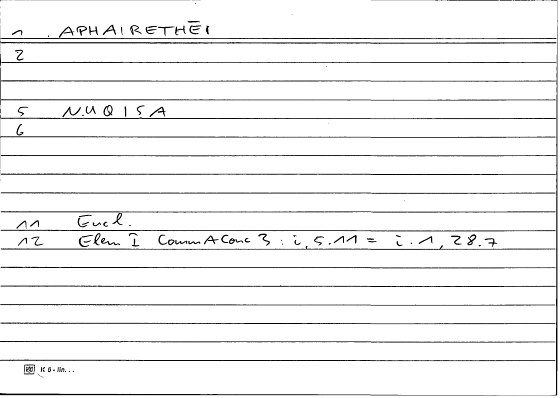 1 . APHAIRETHĒI
2
5 NUQISA
6
11 Eucl.
12 Elem I Comm A Conc 3 : i, 5.11 = i. 1, 28.7
K 5 - lin...